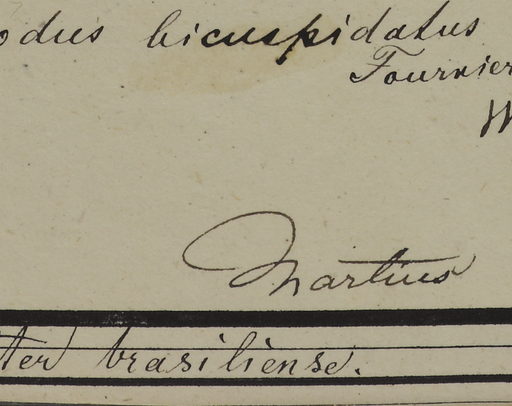 odus bicuspidatus
Fournier
W
Martius
ter brasiliense.